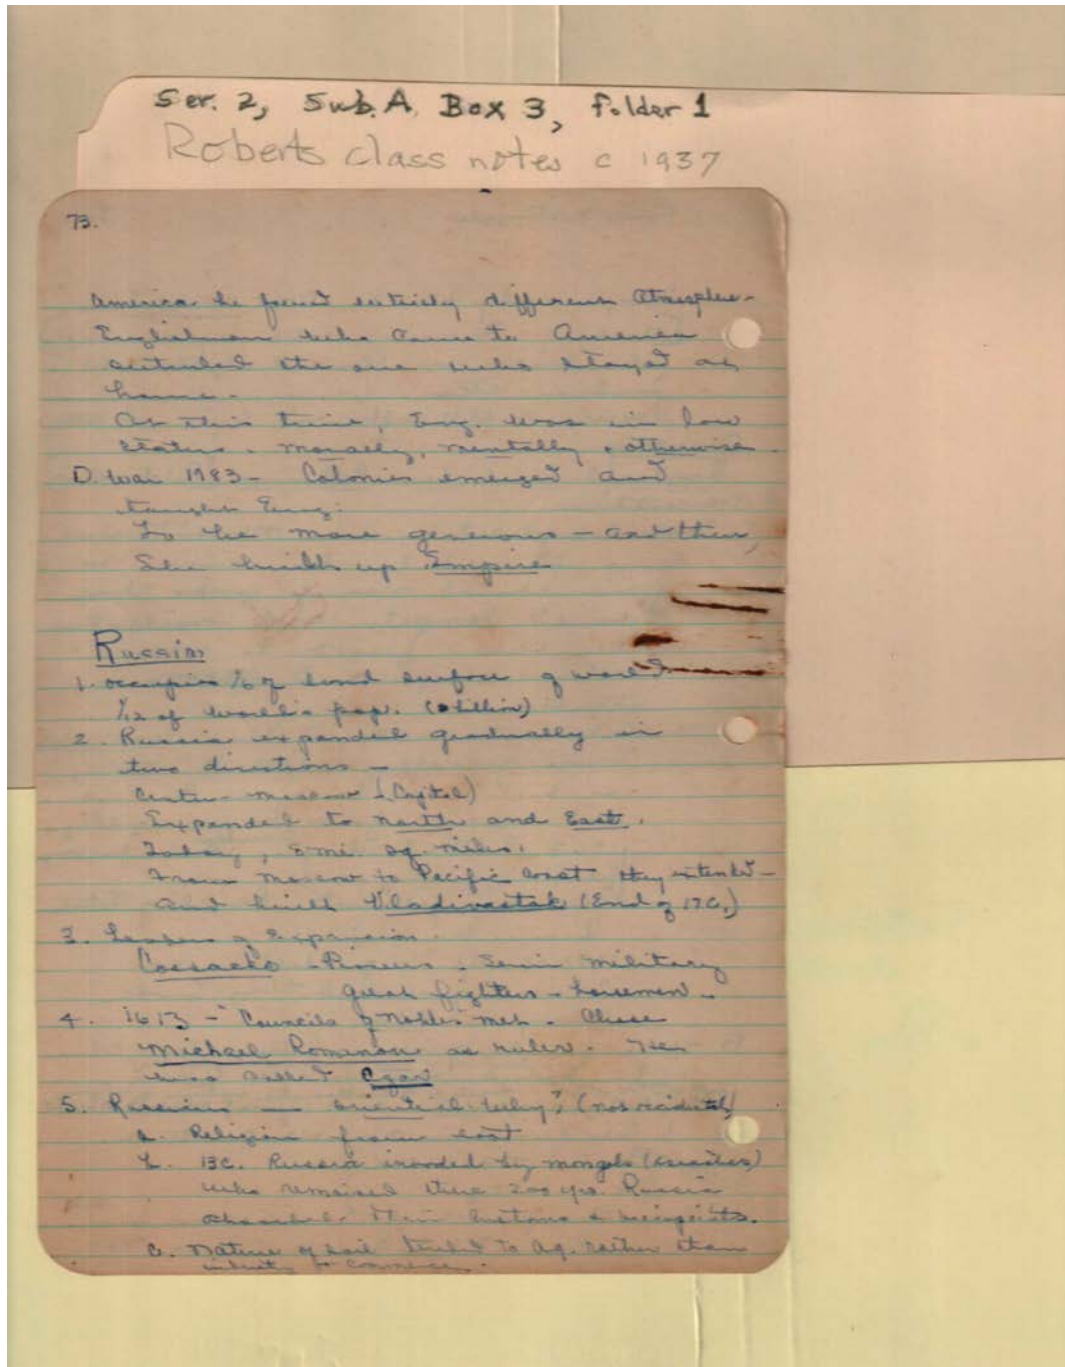 Ser. 2, Sub. A, Box 3, folder 1
Roberts class notes c 1937
73.
America he found entirely different atmosphere-
Englishman who came to America
the one who stayed at
home.
At this time, Eng. was in low
status - morally, mentally + otherwise.
D War 1783 - Colonies emerged and
taught Eng:
To be more generous - and then,
She builds up Empire
Russia
1. occupies 1/6 of land surface of world
1/12 of world's pop.
2. Russia expanded gradually in
two directions -
Center - Moscow (Capital)
Expanded to north and East.
Today, 8 mi. sq. miles.
From Moscow to Pacific coast they extended -
and built Vladivostok (End of 17C.)
3. of Expansion.
Cossacks - Pioneers - Semi military
great fighters - horsemen -
4. 1613 - Councils of nobles met - Chose
Michael Romanov as ruler. He
was called Czar
5. Russians — oriental - why? (not occidental)
a. Religion from east
b. 13C. Russia invaded by mongols (Asiatics)
who remained there 200 yrs. Russia
their customs &
c. Nature of soil tended to ag. rather than
industry or commerce.